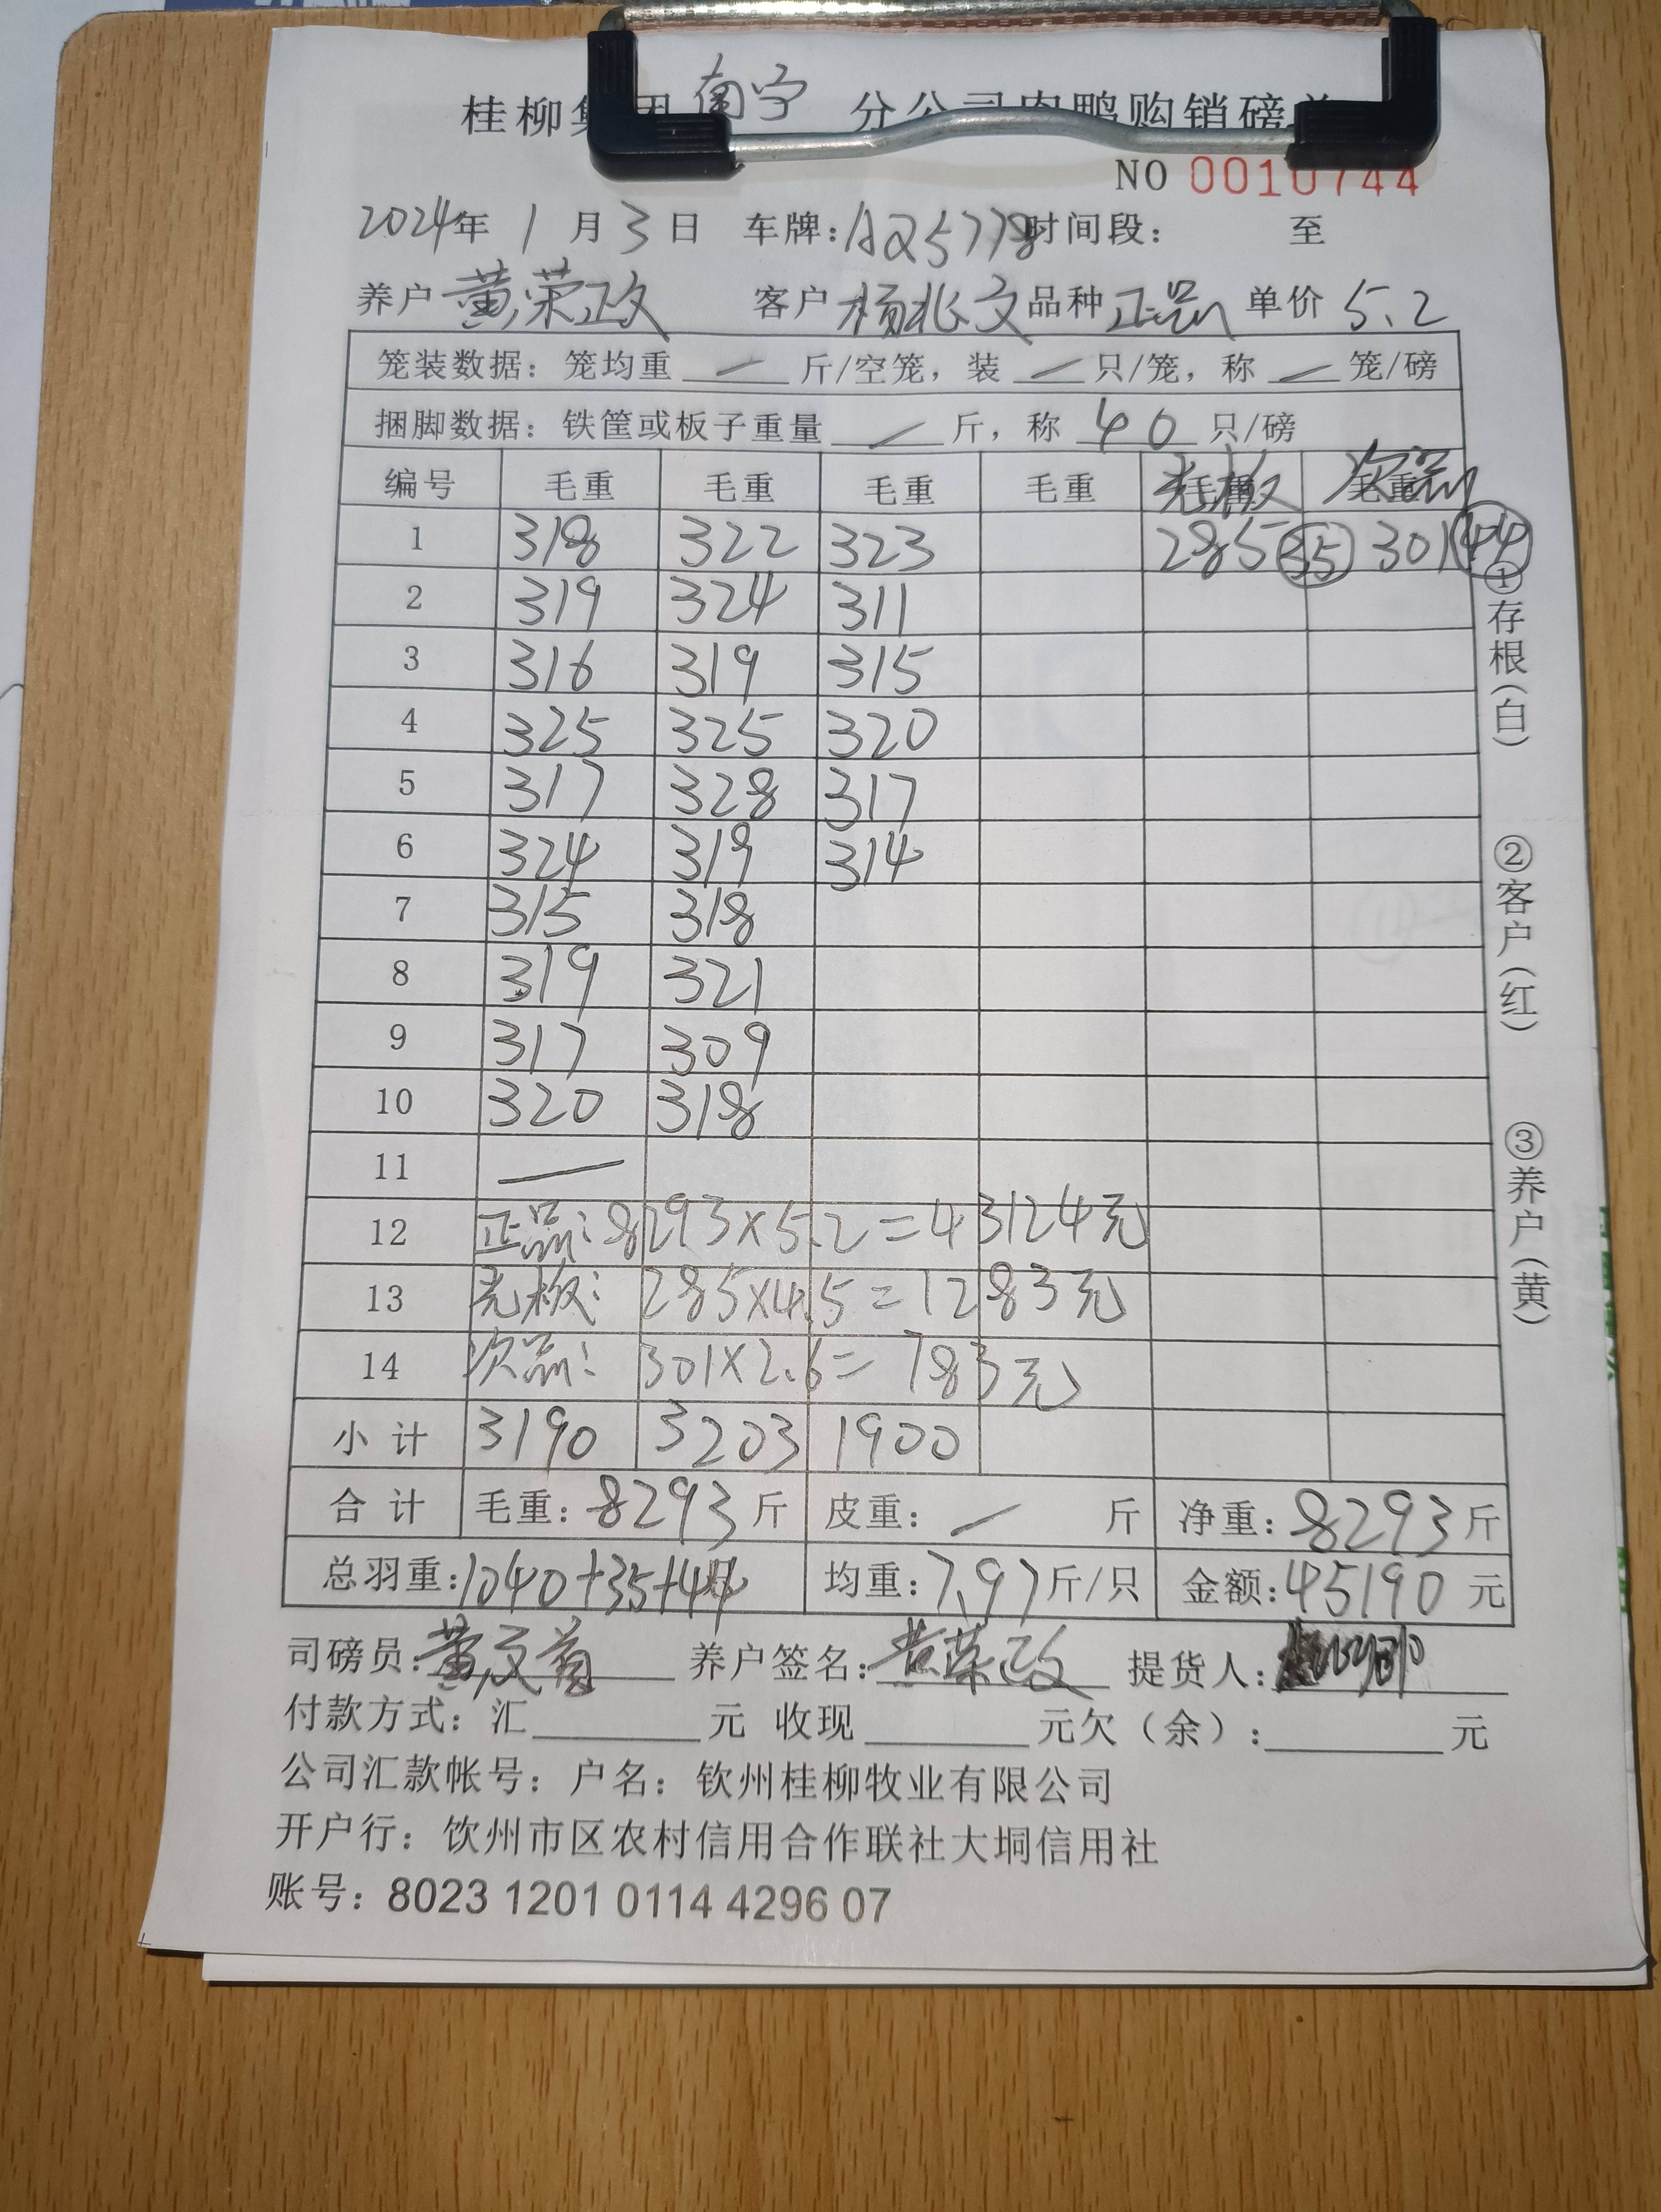 桂柳集团南宁分公司肉鸭购销磅单
NO 0010744
2024年1月3日 车牌:AQ5778 时间段: 至
养户 黄荣政 客户 杨兆文 品种 正品 单价 5.2
笼装数据: 笼均重 — 斤/空笼, 装 — 只/笼, 称 — 笼/磅
捆脚数据: 铁筐或板子重量 — 斤, 称 40 只/磅
编号 毛重 毛重 毛重 毛重 光板 次品
1 318 322 323 285 35 301 44
2 319 324 311
3 316 319 315
4 325 325 320
5 317 328 317
6 324 319 314
7 315 318
8 319 321
9 317 309
10 320 318
11 —
12 正品: 8293×5.2=43124元
13 光板: 285×4.5=1283元
14 次品: 301×2.6=783元
小计 3190 3203 1900
合计 毛重: 8293斤 皮重: — 斤 净重: 8293斤
总羽重: 1040+35+44 均重: 7.97斤/只 金额: 45190元
司磅员: 养户签名: 黄荣政 提货人:
付款方式: 汇 元 收现 元欠(余): 元
公司汇款帐号: 户名: 钦州桂柳牧业有限公司
开户行: 钦州市区农村信用合作联社大垌信用社
账号: 8023 1201 0114 4296 07
①存根(白)
②客户(红)
③养户(黄)